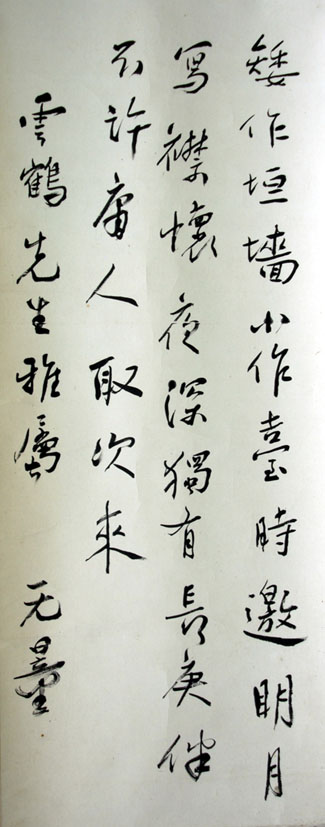 矮作垣墻小作臺時邀明月
寫襟懷夜深獨有長庚伴
不許庸人取次來
雲鶴先生雅屬 无量